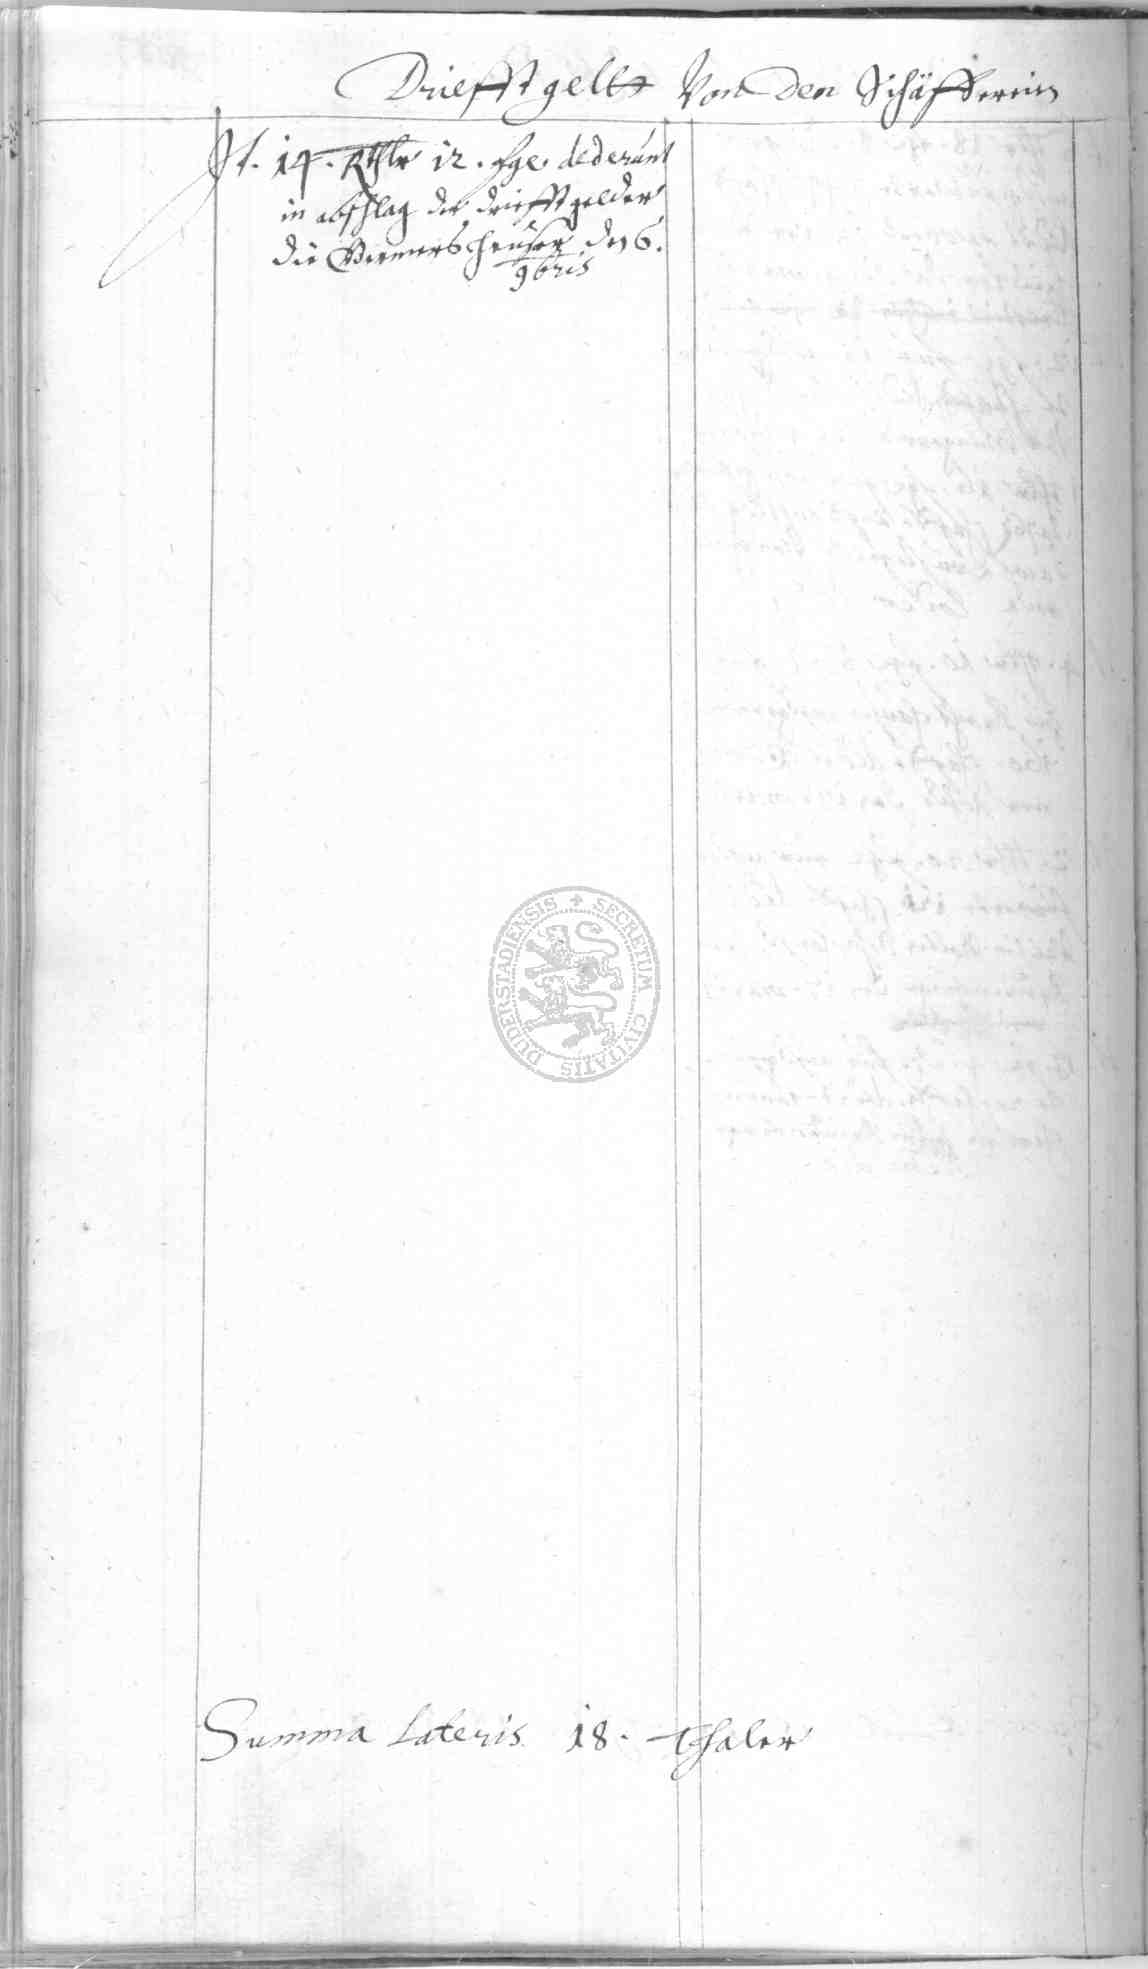 Driefftgellt Von den Schäffereien
It. 14. Rthlr 12. sge. dederunt
in abschlag der driefftgelder
die Wernersheuser den 6.
9bris
SECRETUM CIVITATIS DUDERSTADIENSIS
Summa Lateris 18. Thaler